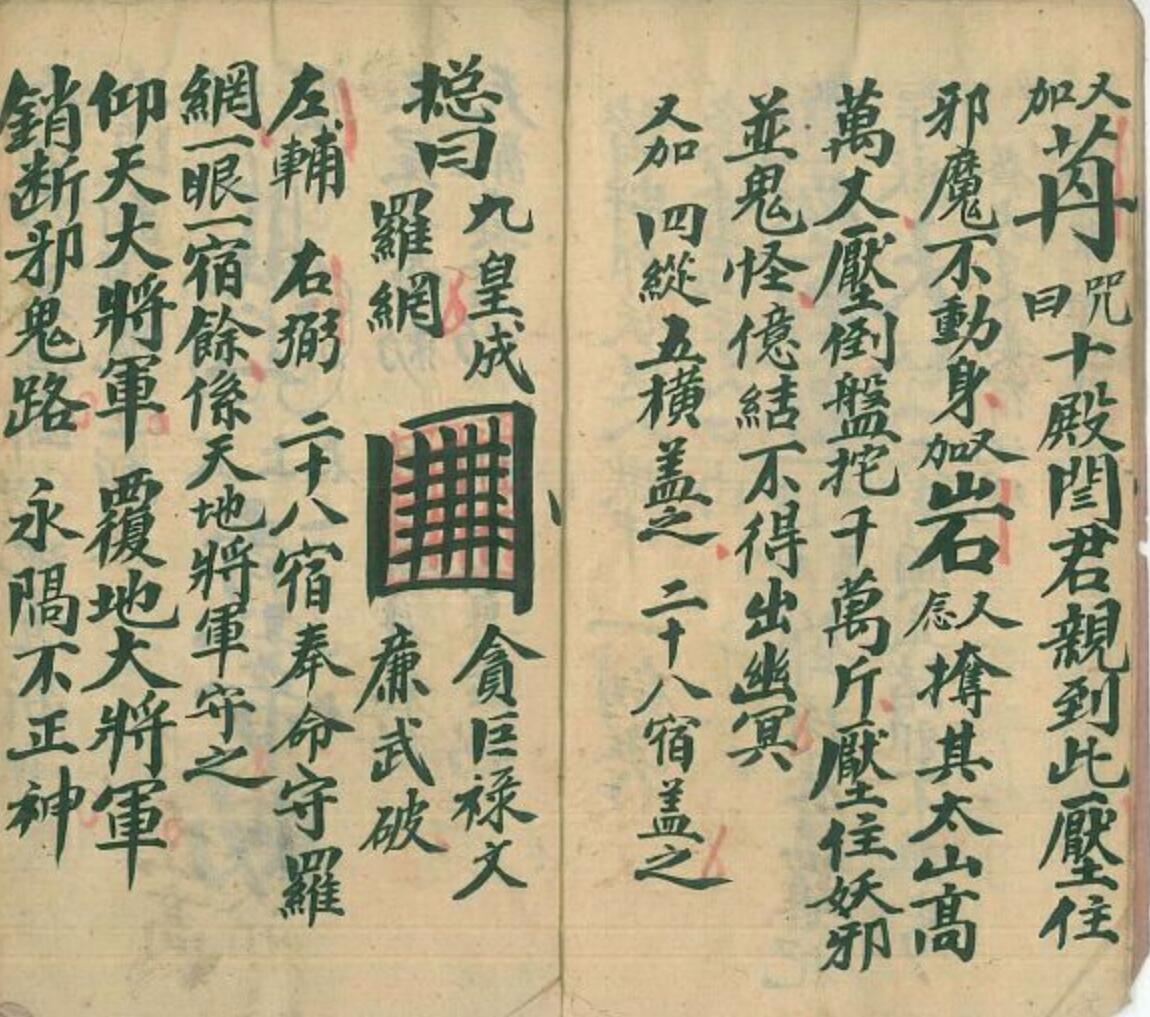 又加苒咒曰十殿閆君親到此壓住
邪魔不動身又加岩又念攆其太山高
萬丈壓倒盤挓千萬斤壓住妖邪
並鬼怪億結不得出幽冥
又加四縱五横盖之二十八宿盖之
摠曰九皇成羅網貪巨禄文廉武破
左輔右弼二十八宿奉命守羅
網一眼一宿餘係天地將軍守之
仰天大將軍覆地大將軍
銷断邪鬼路永隔不正神